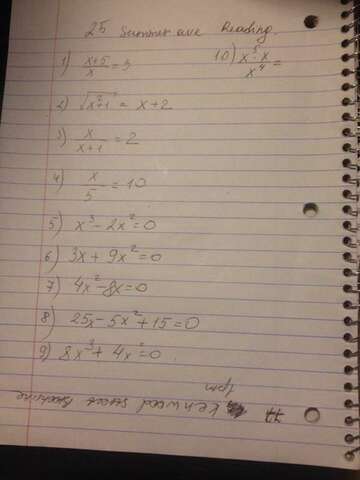 25 Summer ave Reading.
1) x+5/x = 3
10) x⁵·x/x⁴ =
2) √x²+1 = x+2
3) x/x+1 = 2
4) x/5 = 10
5) x³-2x²=0
6) 3x+9x²=0
7) 4x²-8x=0
8) 25x-5x²+15=0
9) 8x³+4x²=0
77 Kenwood street Brookline
1pm